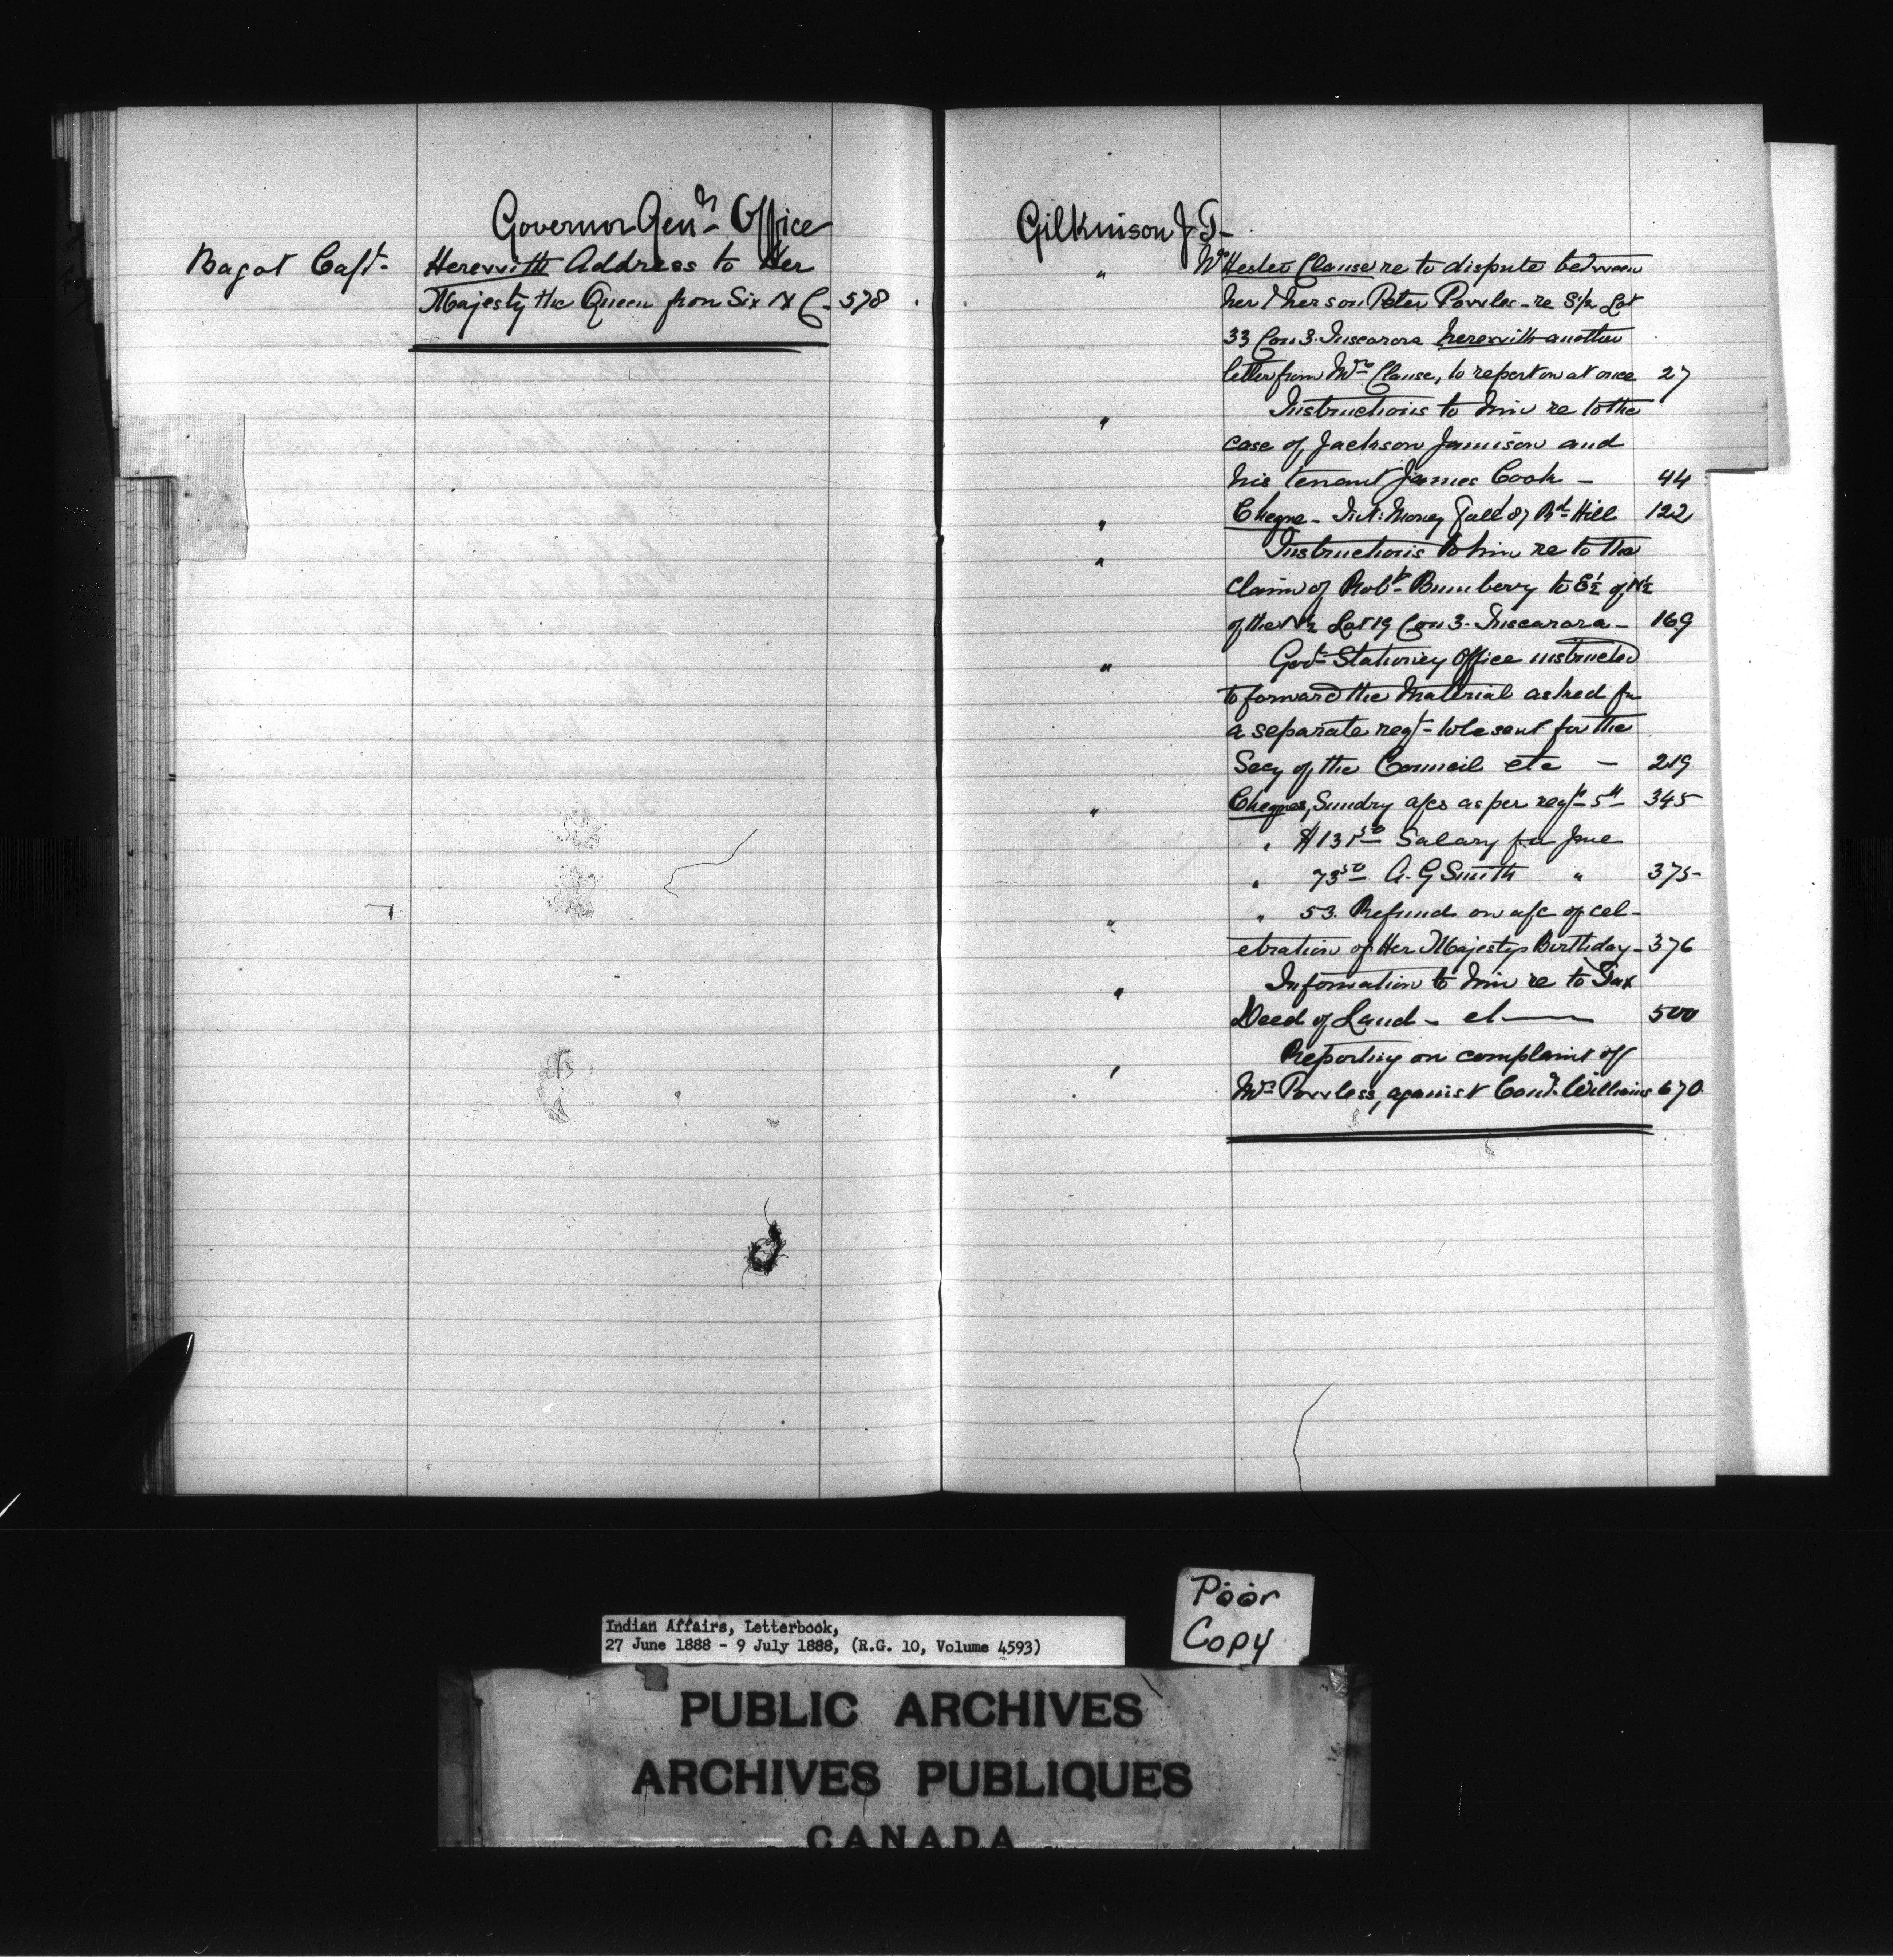 Governor Genls Office
Bagot Capt. Herewith Address to Her
Majesty the Queen from Six N C - 578
Gilkinison J. T-
" Mrs Hester Clause re to dispute between
her & her son Peter Powles - re S½ Lot
33 Con 3. Tuscarora herewith another
letter from Mrs Clause, to report on at once 27
" Instructions to him re to the
case of Jackson Jamison and
his tenant James Cook - 44
" Cheque - Int: Money Fall 87 Rd Hill 122
" Instructions to him re to the
Claim of Robt Bumberry to E½ of N½
of the N½ Lot 19 Con 3. Tuscarora - 169
" Govt Stationey Office instructed
to forward the Material asked for
a separate reqt - to be sent for the
Secy of the Council etc - 219
" Cheques, Sundry a/cs as per reqt 5th 345
" $131 50 Salary for June
" 73 50 A. G Smith " 375
" " 53. Refund on a/c of cel-
ebration of Her Majestys Birthday - 376
" Information to him re to Tax
Deed of Land - et 500
" Reporting on complaint of
Mrs Powless, against Cond. Williams 670
Poor
Copy
Indian Affairs, Letterbook,
27 June 1888 - 9 July 1888, (R.G. 10, Volume 4593)
PUBLIC ARCHIVES
ARCHIVES PUBLIQUES
CANADA